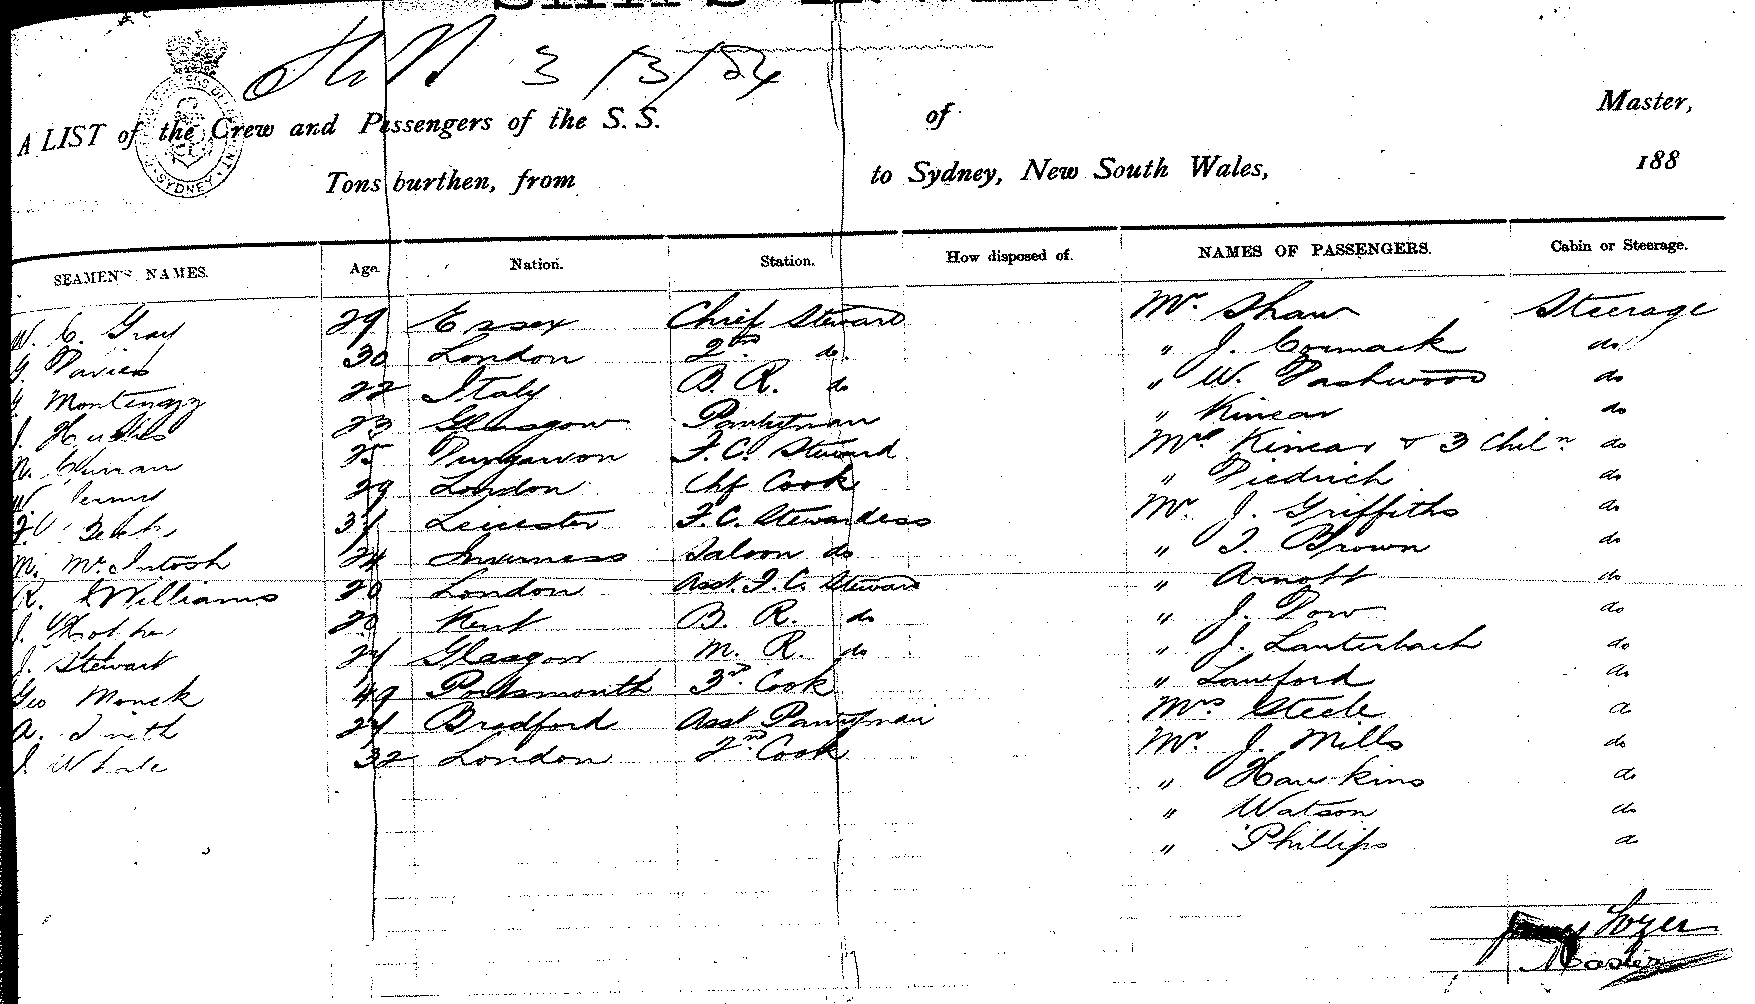 3/3/84
A LIST of the Crew and Passengers of the S. S. of Master,
Tons burthen, from to Sydney, New South Wales, 188
SEAMEN'S NAMES. Age. Nation. Station. How disposed of. NAMES OF PASSENGERS. Cabin or Steerage.
W. C. Gray 29 Essex Chief Steward Mr. Shaw Steerage
G. Davies 30 London 2nd. do. " J. Cormack do
Montenagy 22 Italy B. R. do " W. Dashwood do
J. 23 Glasgow Pantryman " Kinear do
25 Dungarvon F. C. Steward Mrs Kinear & 3 Chiln do
W. 29 London Chf Cook " Diedrich do
31 Leicester F. C. Stewardess Mr. J. Griffiths do
M. McIntosh 24 Inverness Saloon do " T. Brown do
R. Williams 20 London Asst. F. C. Steward " Arnott do
J. 20 Kent B. R. do " J. Dow do
J. Stewart 24 Glasgow M. R. do " J. Lauterbach do
Geo Monck 49 Portsmouth 3rd. Cook " Lawford do
A. 24 Bradford Asst Pantryman Mrs Steele do
J. 32 London 2nd. Cook Mr. J. Mills do
" Hawkins do
" Watson do
" Phillips do
Master
SYDNEY